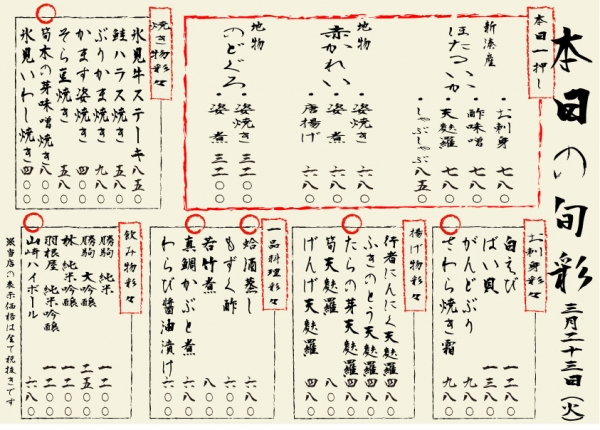 本日の旬彩 三月二十三日(火)
本日一押し
新湊産
ほたるいか
・お刺身 七八〇
・酢味噌 七八〇
・天麩羅 七八〇
・しゃぶしゃぶ 八五〇
地物
赤かれい
・姿焼き 六八〇
・姿煮 六八〇
・唐揚げ 六八〇
地物
のどぐろ
・姿焼き 三二〇〇
・姿煮 三二〇〇
焼き物彩々
氷見牛ステーキ
鮭ハラス焼き
ぶりかま焼き
かます姿焼き
そら豆焼き
筍木の芽味噌焼き
氷見いわし焼き
お刺身彩々
白えび 一二八〇
ばい貝 一三八〇
がんどぶり 九八〇
さわら焼き霜 九八〇
揚げ物彩々
行者にんにく天麩羅 四八〇
ふきのとう天麩羅 四八〇
たらの芽天麩羅
筍天麩羅 四八〇
げんげ天麩羅 四八〇
一品料理彩々
蛤酒蒸し
もずく酢
若竹煮
真鯛かぶと煮
わらび醤油漬け
飲み物彩々
勝駒 純米
勝駒 大吟醸
林 純米吟醸
羽根屋 純米吟醸
山崎ハイボール
※当店の表示価格は全て税抜きです